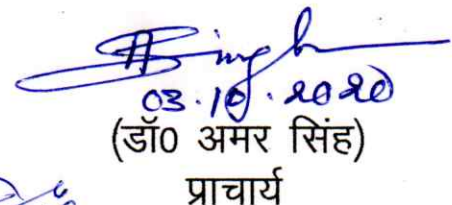 Singh
03.10.2020
(डॉ0 अमर सिंह)
प्राचार्य